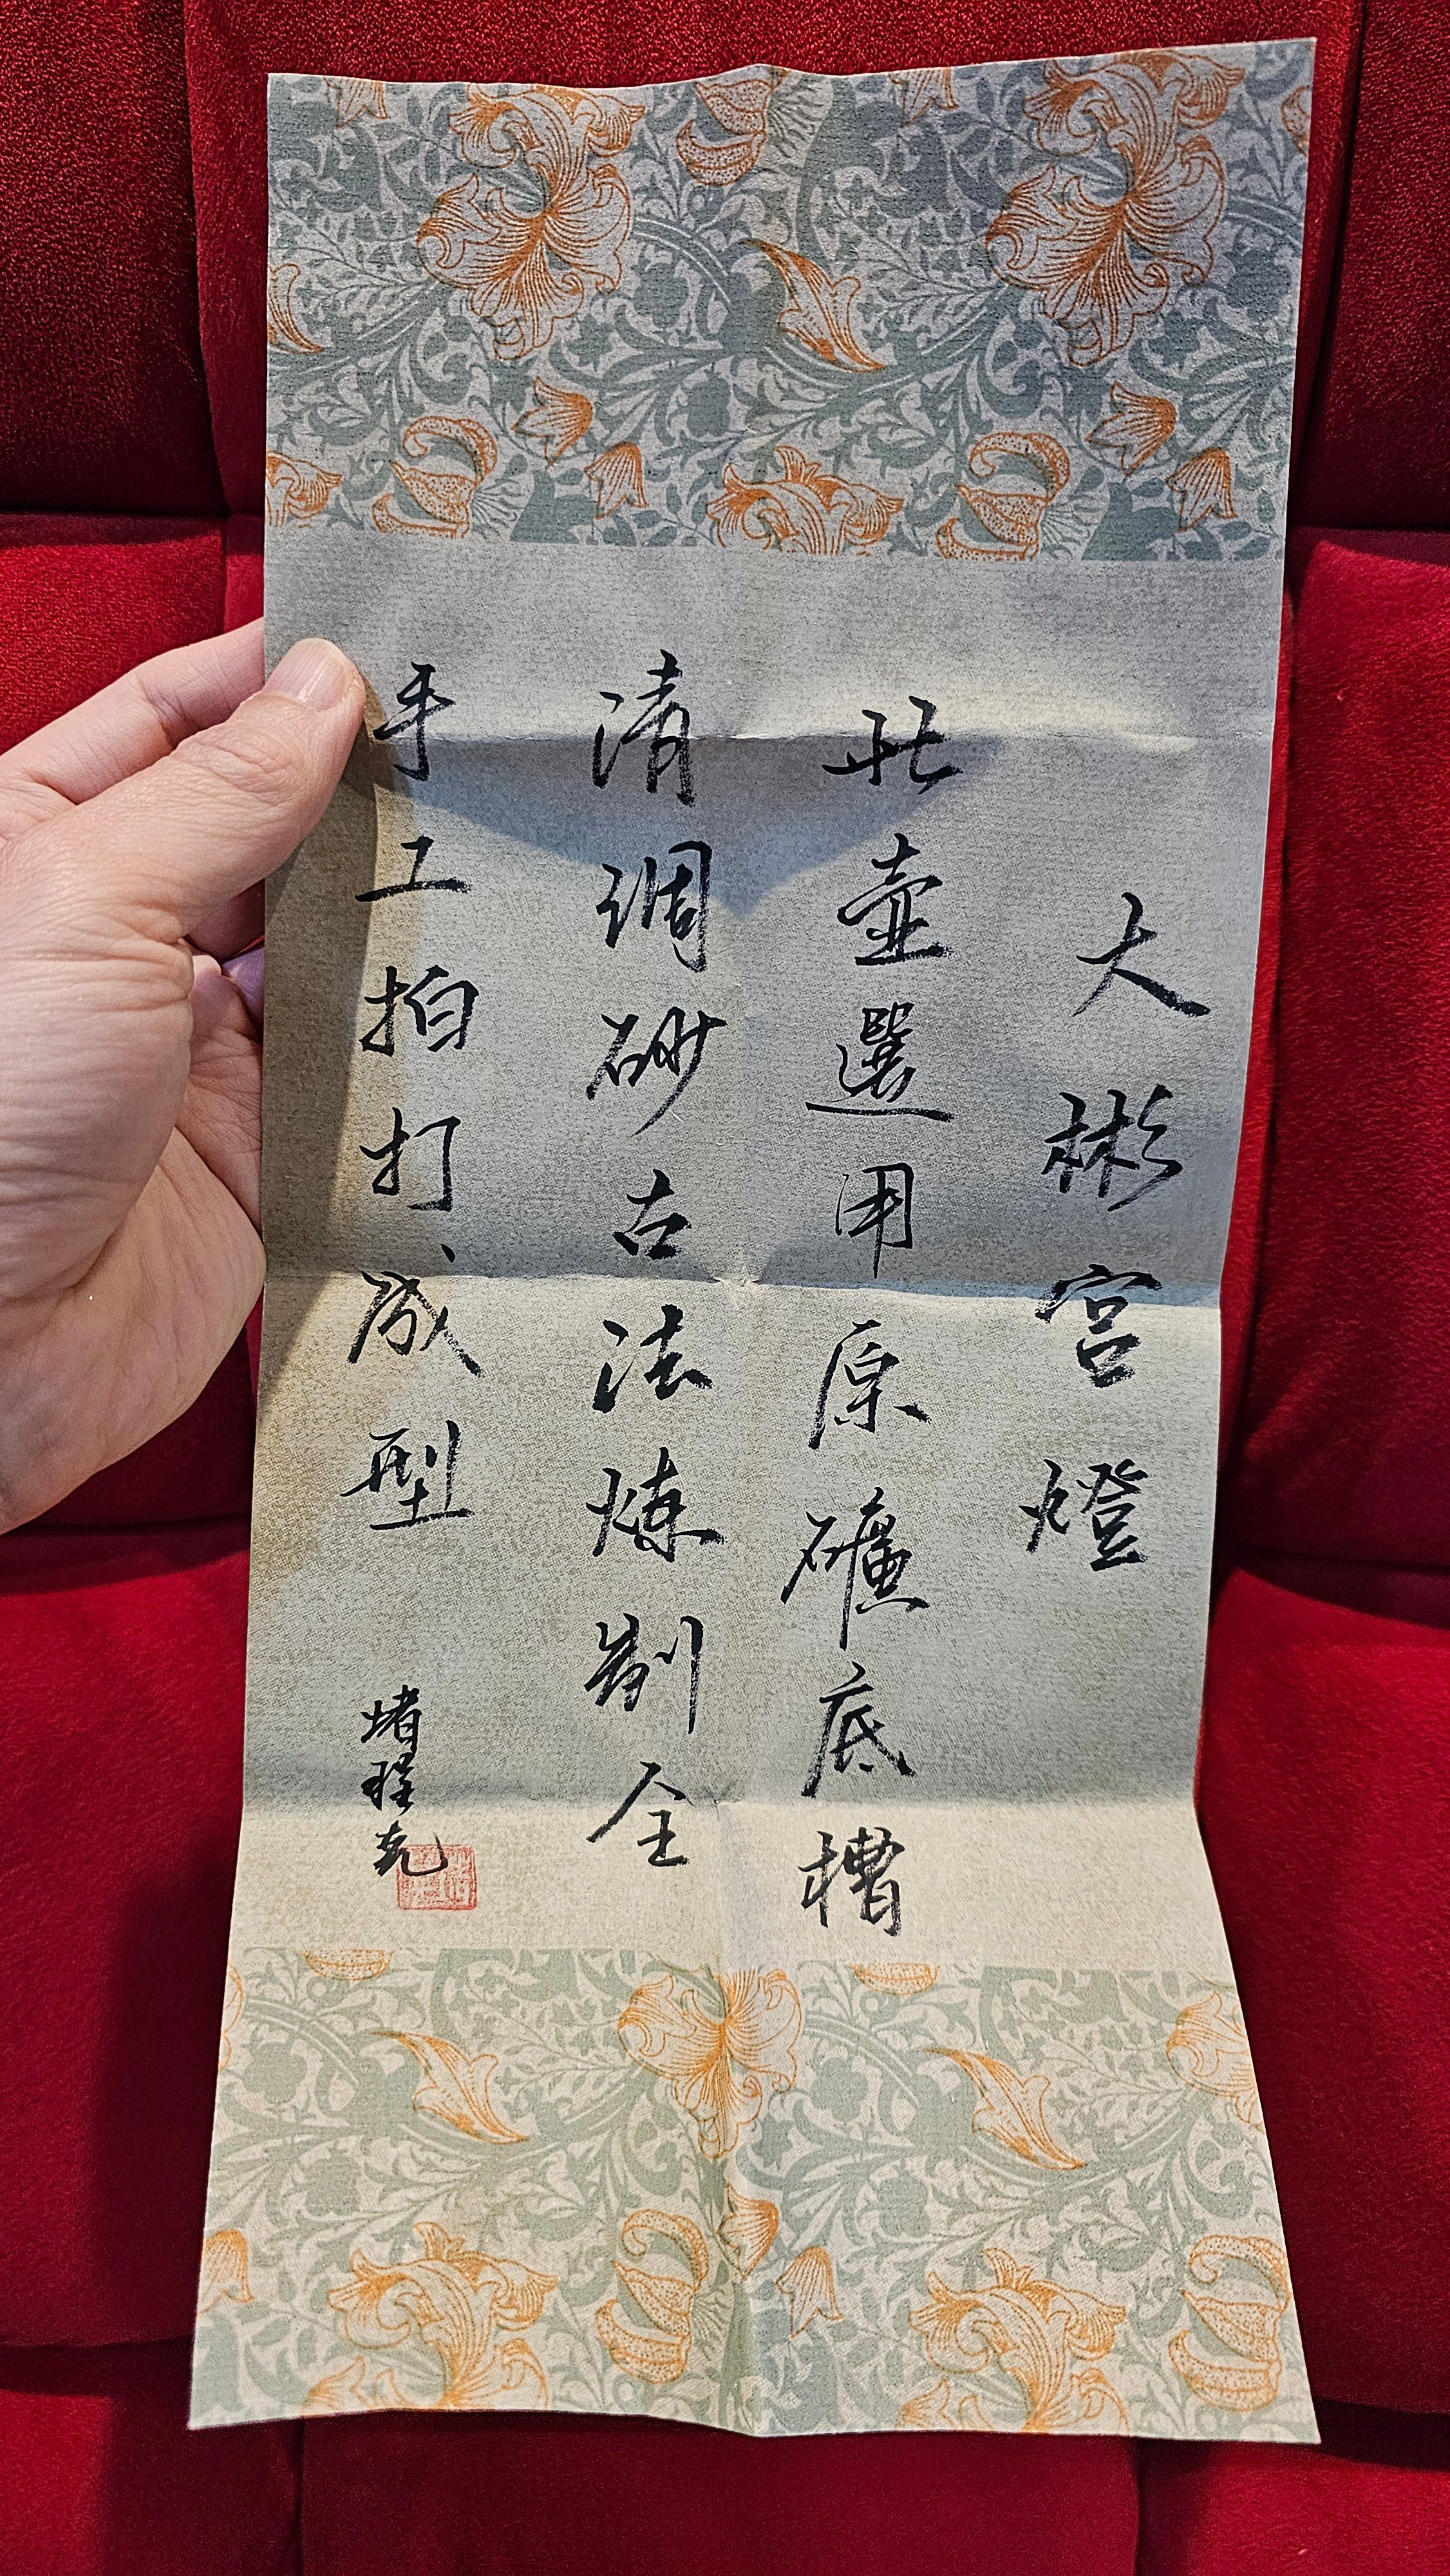 大彬宫燈
此壶選用原礦底槽
清调砂古法炼制全
手工拍打成型
堵程